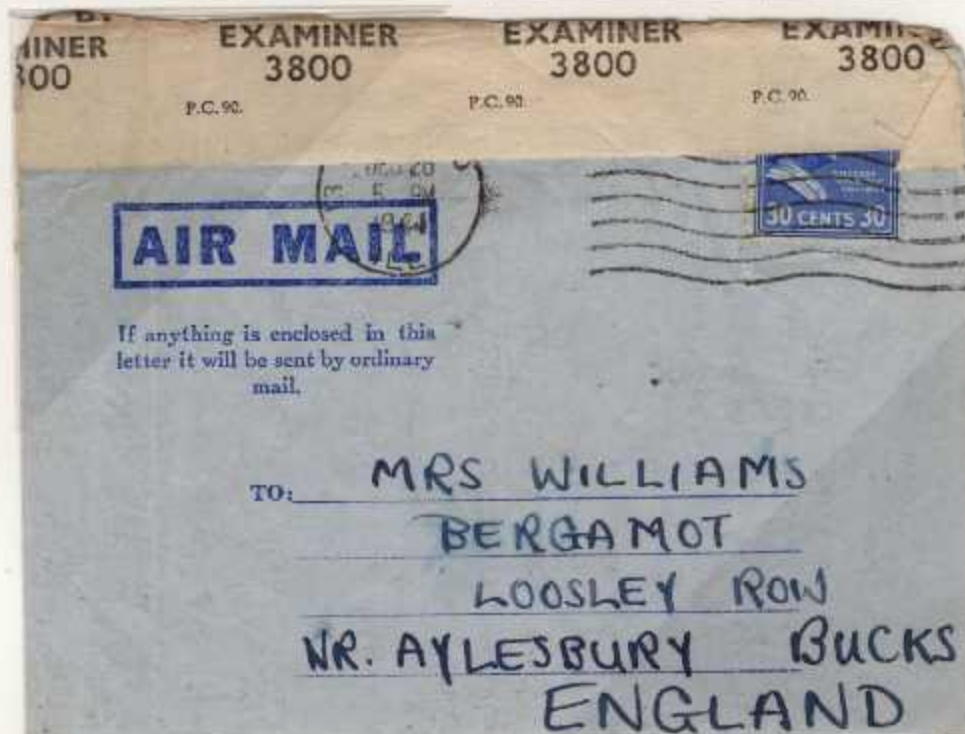 EXAMINER EXAMINER
3800 3800 3800
P.C. 90. P.C. 90. P.C. 90.
5 PM
AIR MAIL
30 CENTS 30
If anything is enclosed in this
letter it will be sent by ordinary
mail.
TO: MRS WILLIAMS
BERGAMOT
LOOSLEY ROW
NR. AYLESBURY BUCKS
ENGLAND